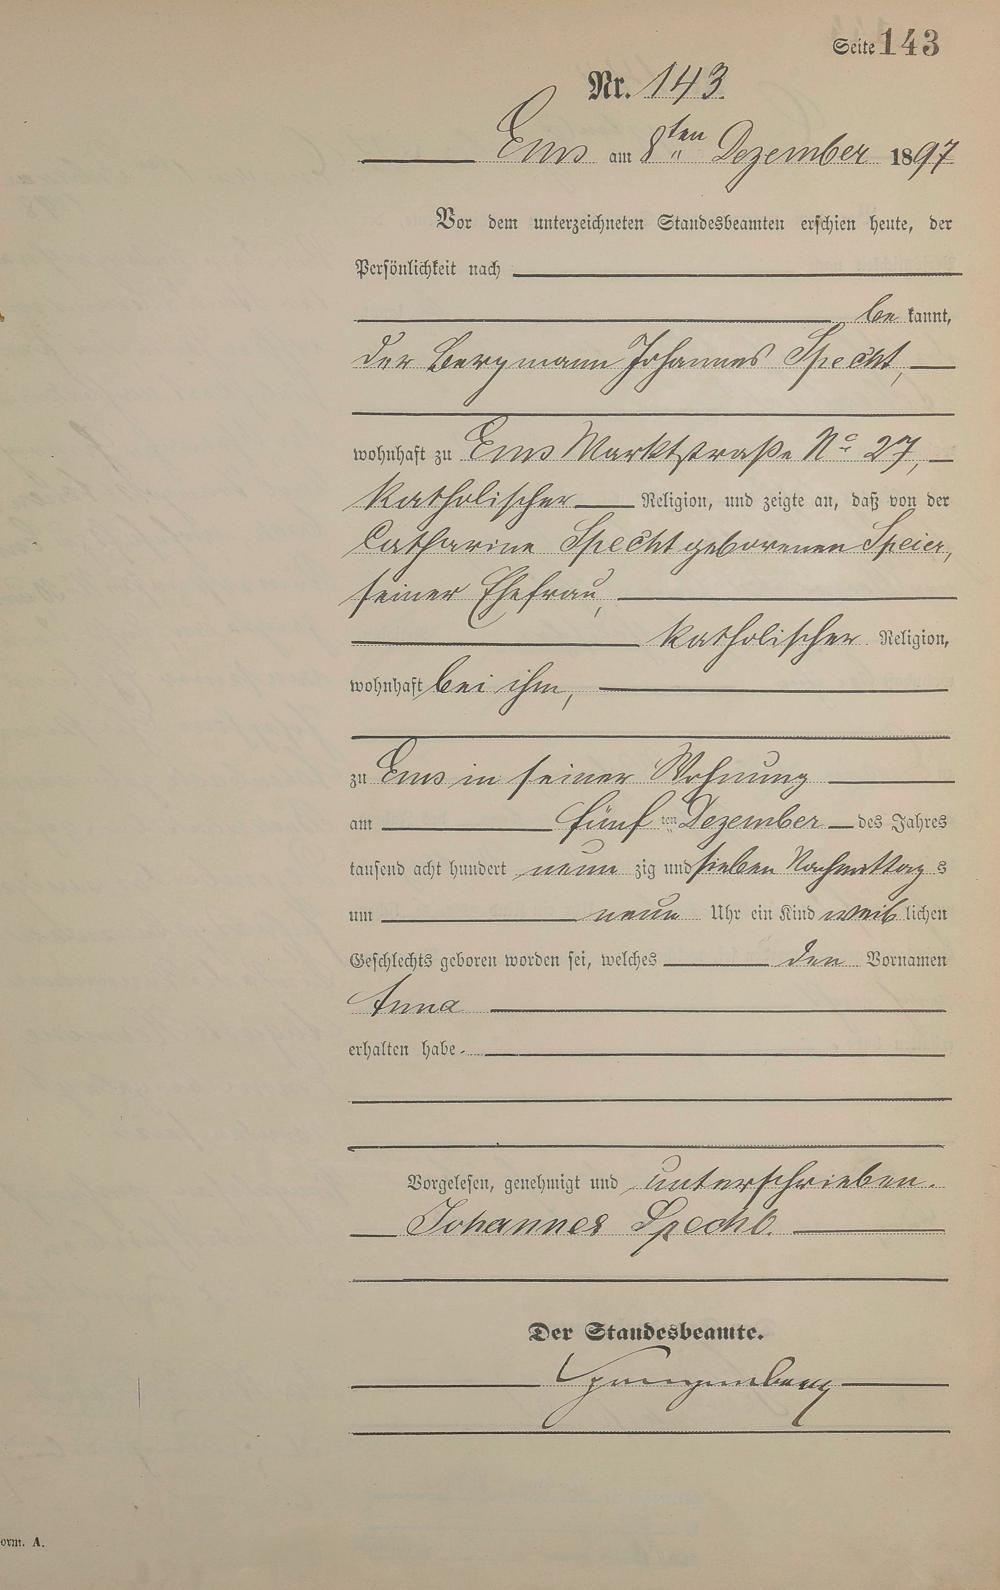 Seite 143
Nr. 143.
Ems am 8ten Dezember 1897
Vor dem unterzeichneten Standesbeamten erschien heute, der
Persönlichkeit nach
be kannt,
der Bergmann Johannes Specht,
wohnhaft zu Ems Marktstraße No 27,
katholischer Religion, und zeigte an, daß von der
Catharine Specht geborenen Speier,
seiner Ehefrau,
katholischer Religion,
wohnhaft bei ihm,
zu Ems in seiner Wohnung
am fünf ten Dezember des Jahres
tausend acht hundert neun zig und sieben Nachmittag s
um neun Uhr ein Kind weib lichen
Geschlechts geboren worden sei, welches den Vornamen
Anna
erhalten habe.
Vorgelesen, genehmigt und unterschrieben.
Johannes Specht.
Der Standesbeamte.
Spangenberg
orm. A.